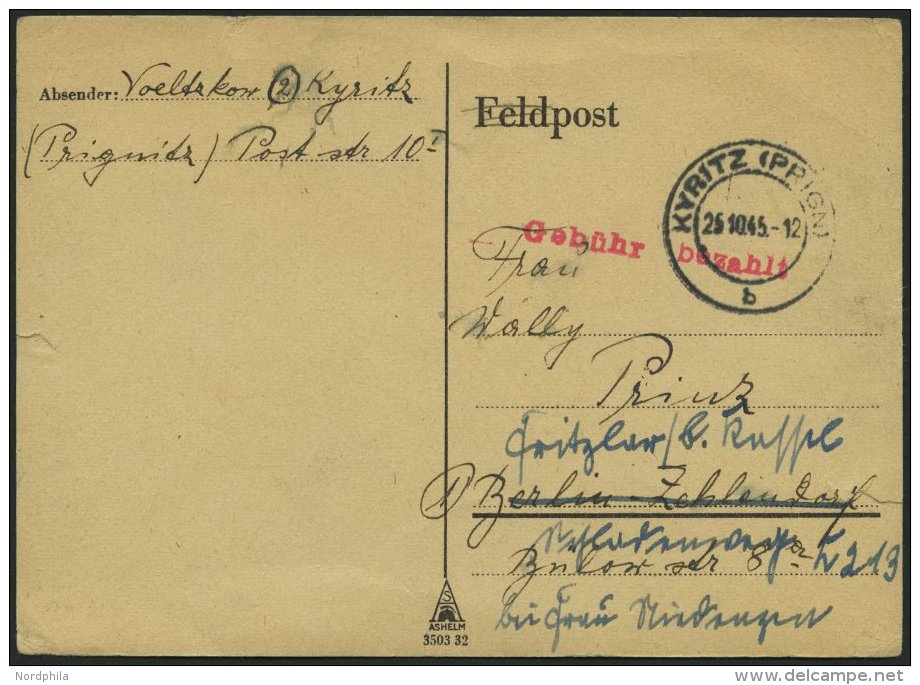 Absender: Voeltzkow (2) Kyritz
(Prignitz) Post str 10I
Feldpost
KYRITZ (PRIGN)
25.10.45.-12
b
Gebühr bezahlt
Frau
Wally
Prinz
Fritzlar/b. Kassel
Berlin-Zehlendorf
Schladenweg
Bülow str 8
bei Frau
S
ASHELM
3503 32
Nordphila